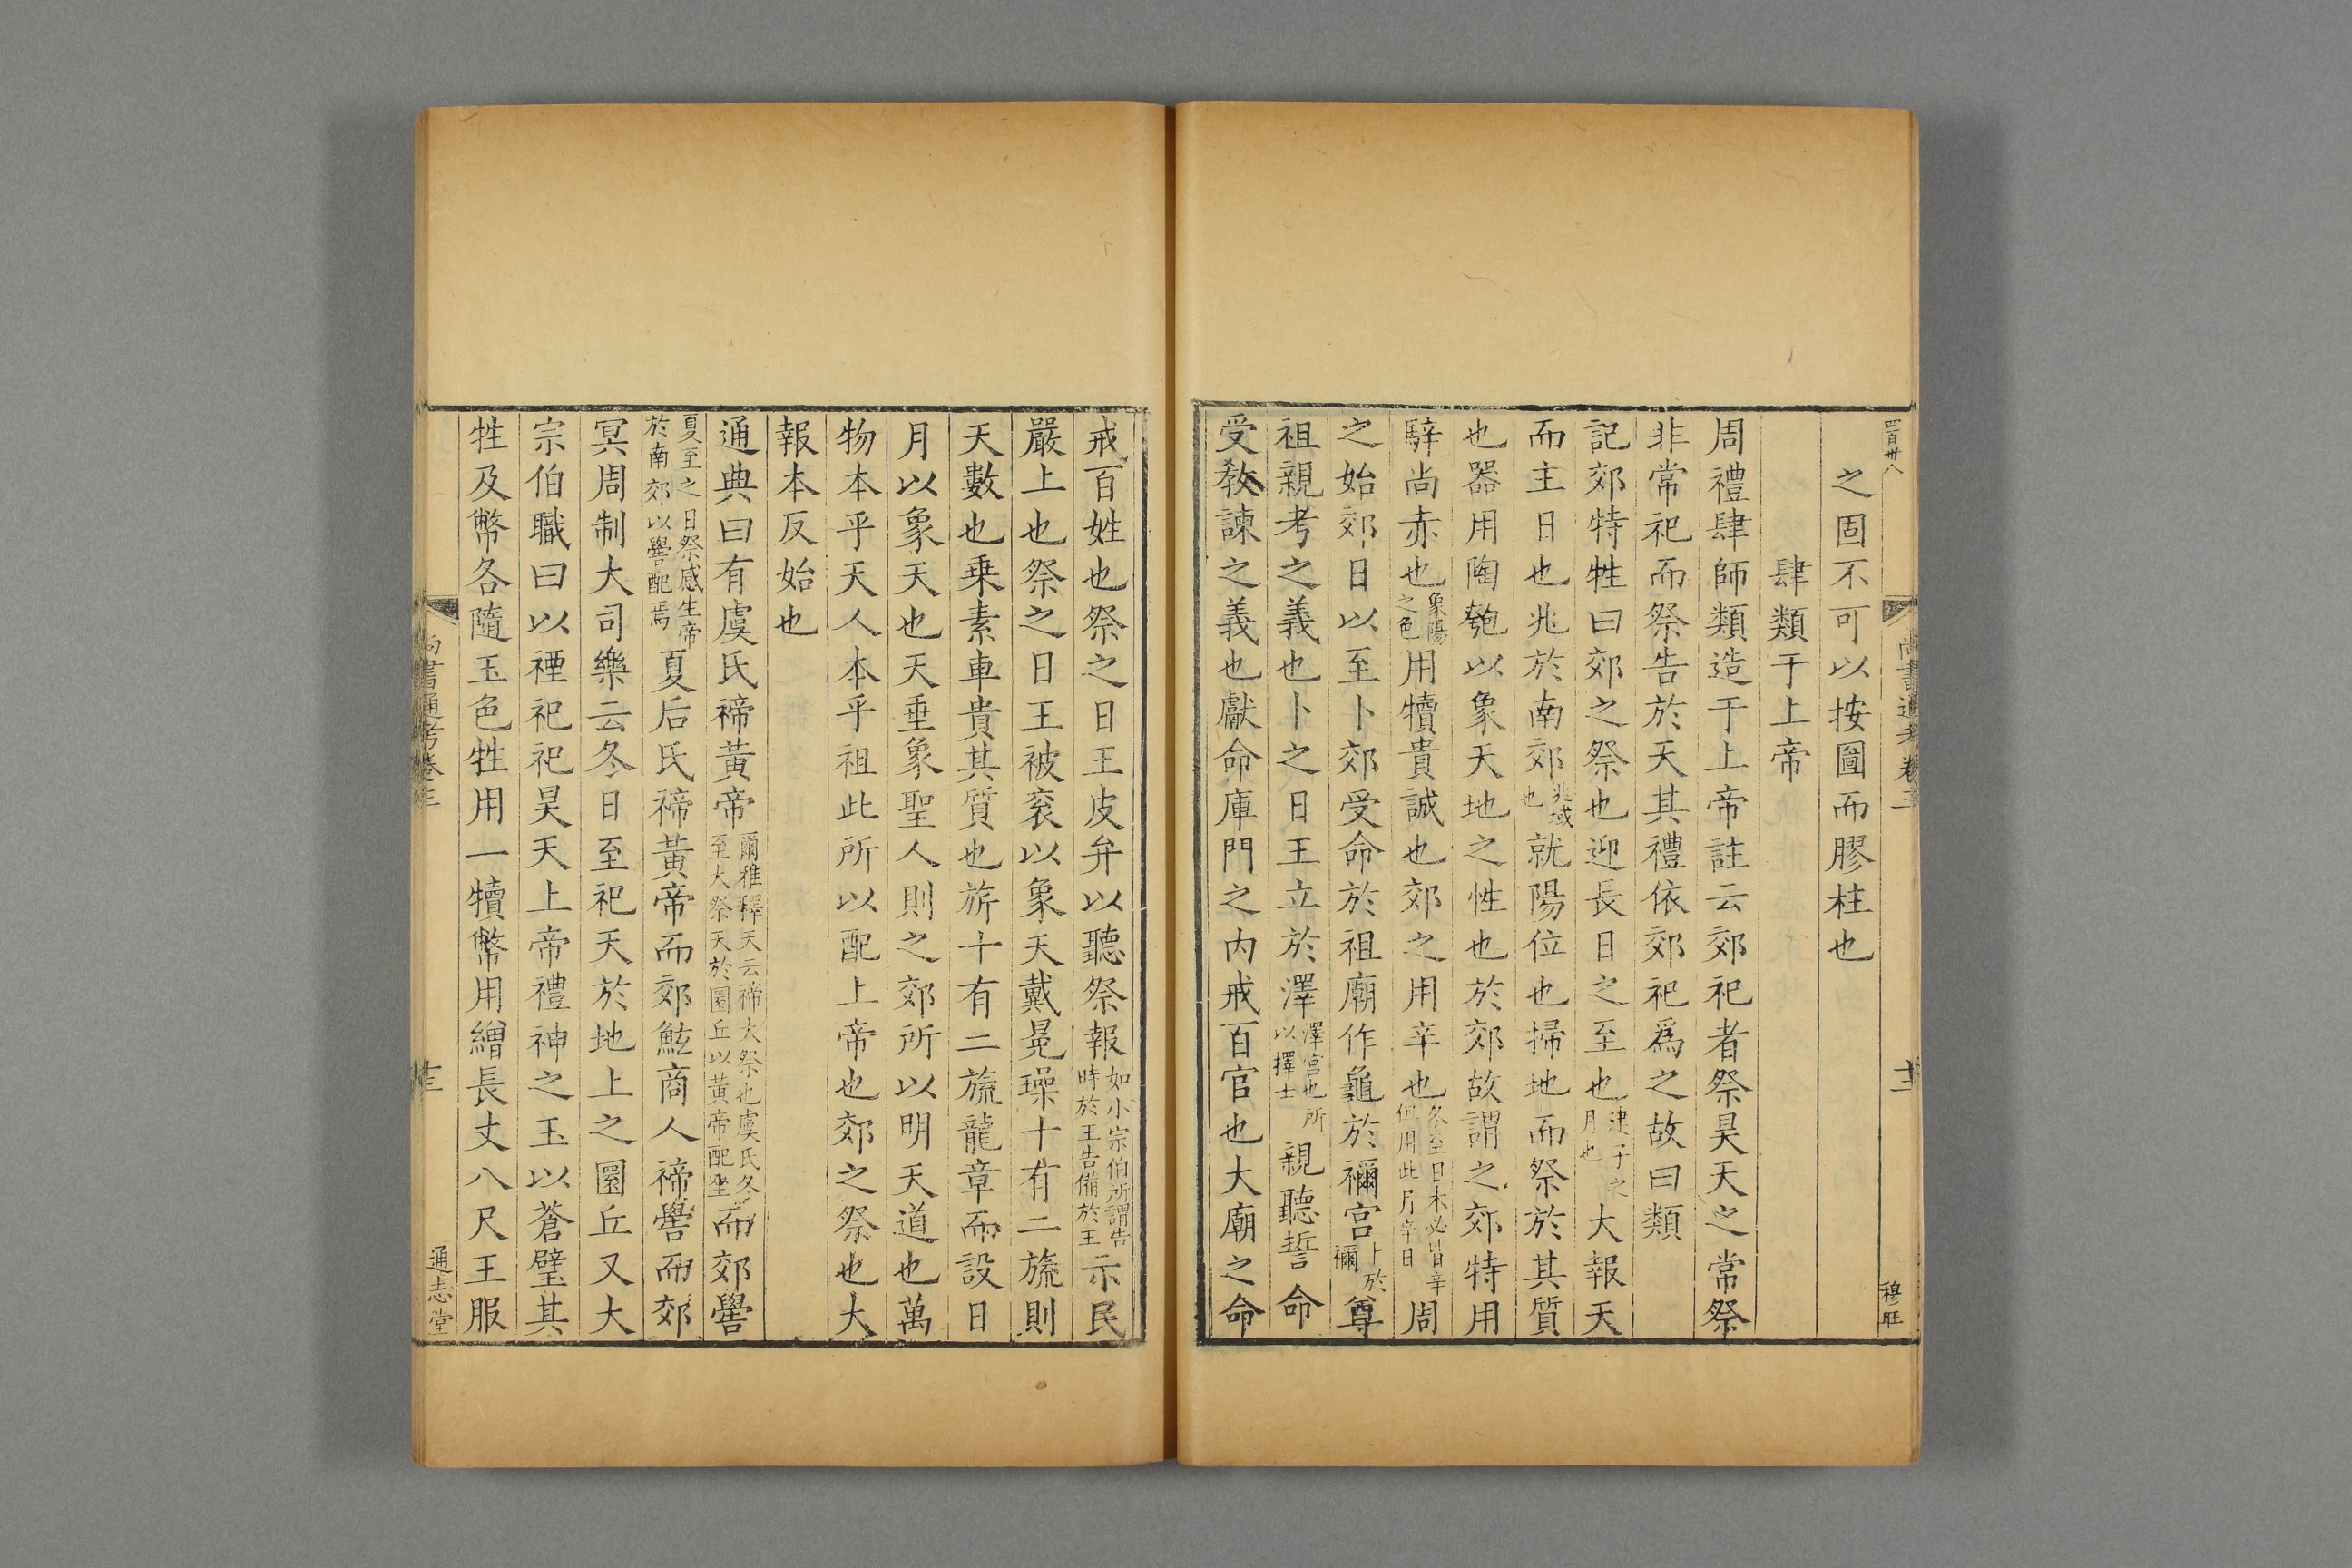 四百卅八
尚書通考卷三
十二
穆旺
之固不可以按圖而膠柱也
肆類于上帝
周禮肆師類造于上帝註云郊祀者祭昊天之常祭
非常祀而祭告於天其禮依郊祀爲之故曰類
記郊特牲曰郊之祭也迎長日之至也建子之月也大報天
而主日也兆於南郊兆域也就陽位也掃地而祭於其質
也器用陶匏以象天地之性也於郊故謂之郊特用
騂尚赤也象陽之色用犢貴誠也郊之用辛也冬至日未必皆辛但用此月辛日周
之始郊日以至卜郊受命於祖廟作龜於禰宮卜於禰尊
祖親考之義也卜之日王立於澤澤宮也所以擇士親聽誓命
受教諫之義也獻命庫門之內戒百官也大廟之命
戒百姓也祭之日王皮弁以聽祭報如小宗伯所謂告時於王告備於王示民
嚴上也祭之日王被衮以象天戴冕璪十有二旒則
天數也乗素車貴其質也旂十有二旒龍章而設日
月以象天也天垂象聖人則之郊所以明天道也萬
物本乎天人本乎祖此所以配上帝也郊之祭也大
報本反始也
通典曰有虞氏禘黃帝爾雅釋天云禘大祭也虞氏冬至大祭天於圜丘以黃帝配坐而郊嚳
夏至之日祭感生帝於南郊以嚳配焉夏后氏禘黃帝而郊鮌商人禘嚳而郊
冥周制大司樂云冬日至祀天於地上之圜丘又大
宗伯職曰以禋祀祀昊天上帝禮神之玉以蒼璧其
牲及幣各隨玉色牲用一犢幣用繒長丈八尺王服
尚書通考卷三
十三
通志堂